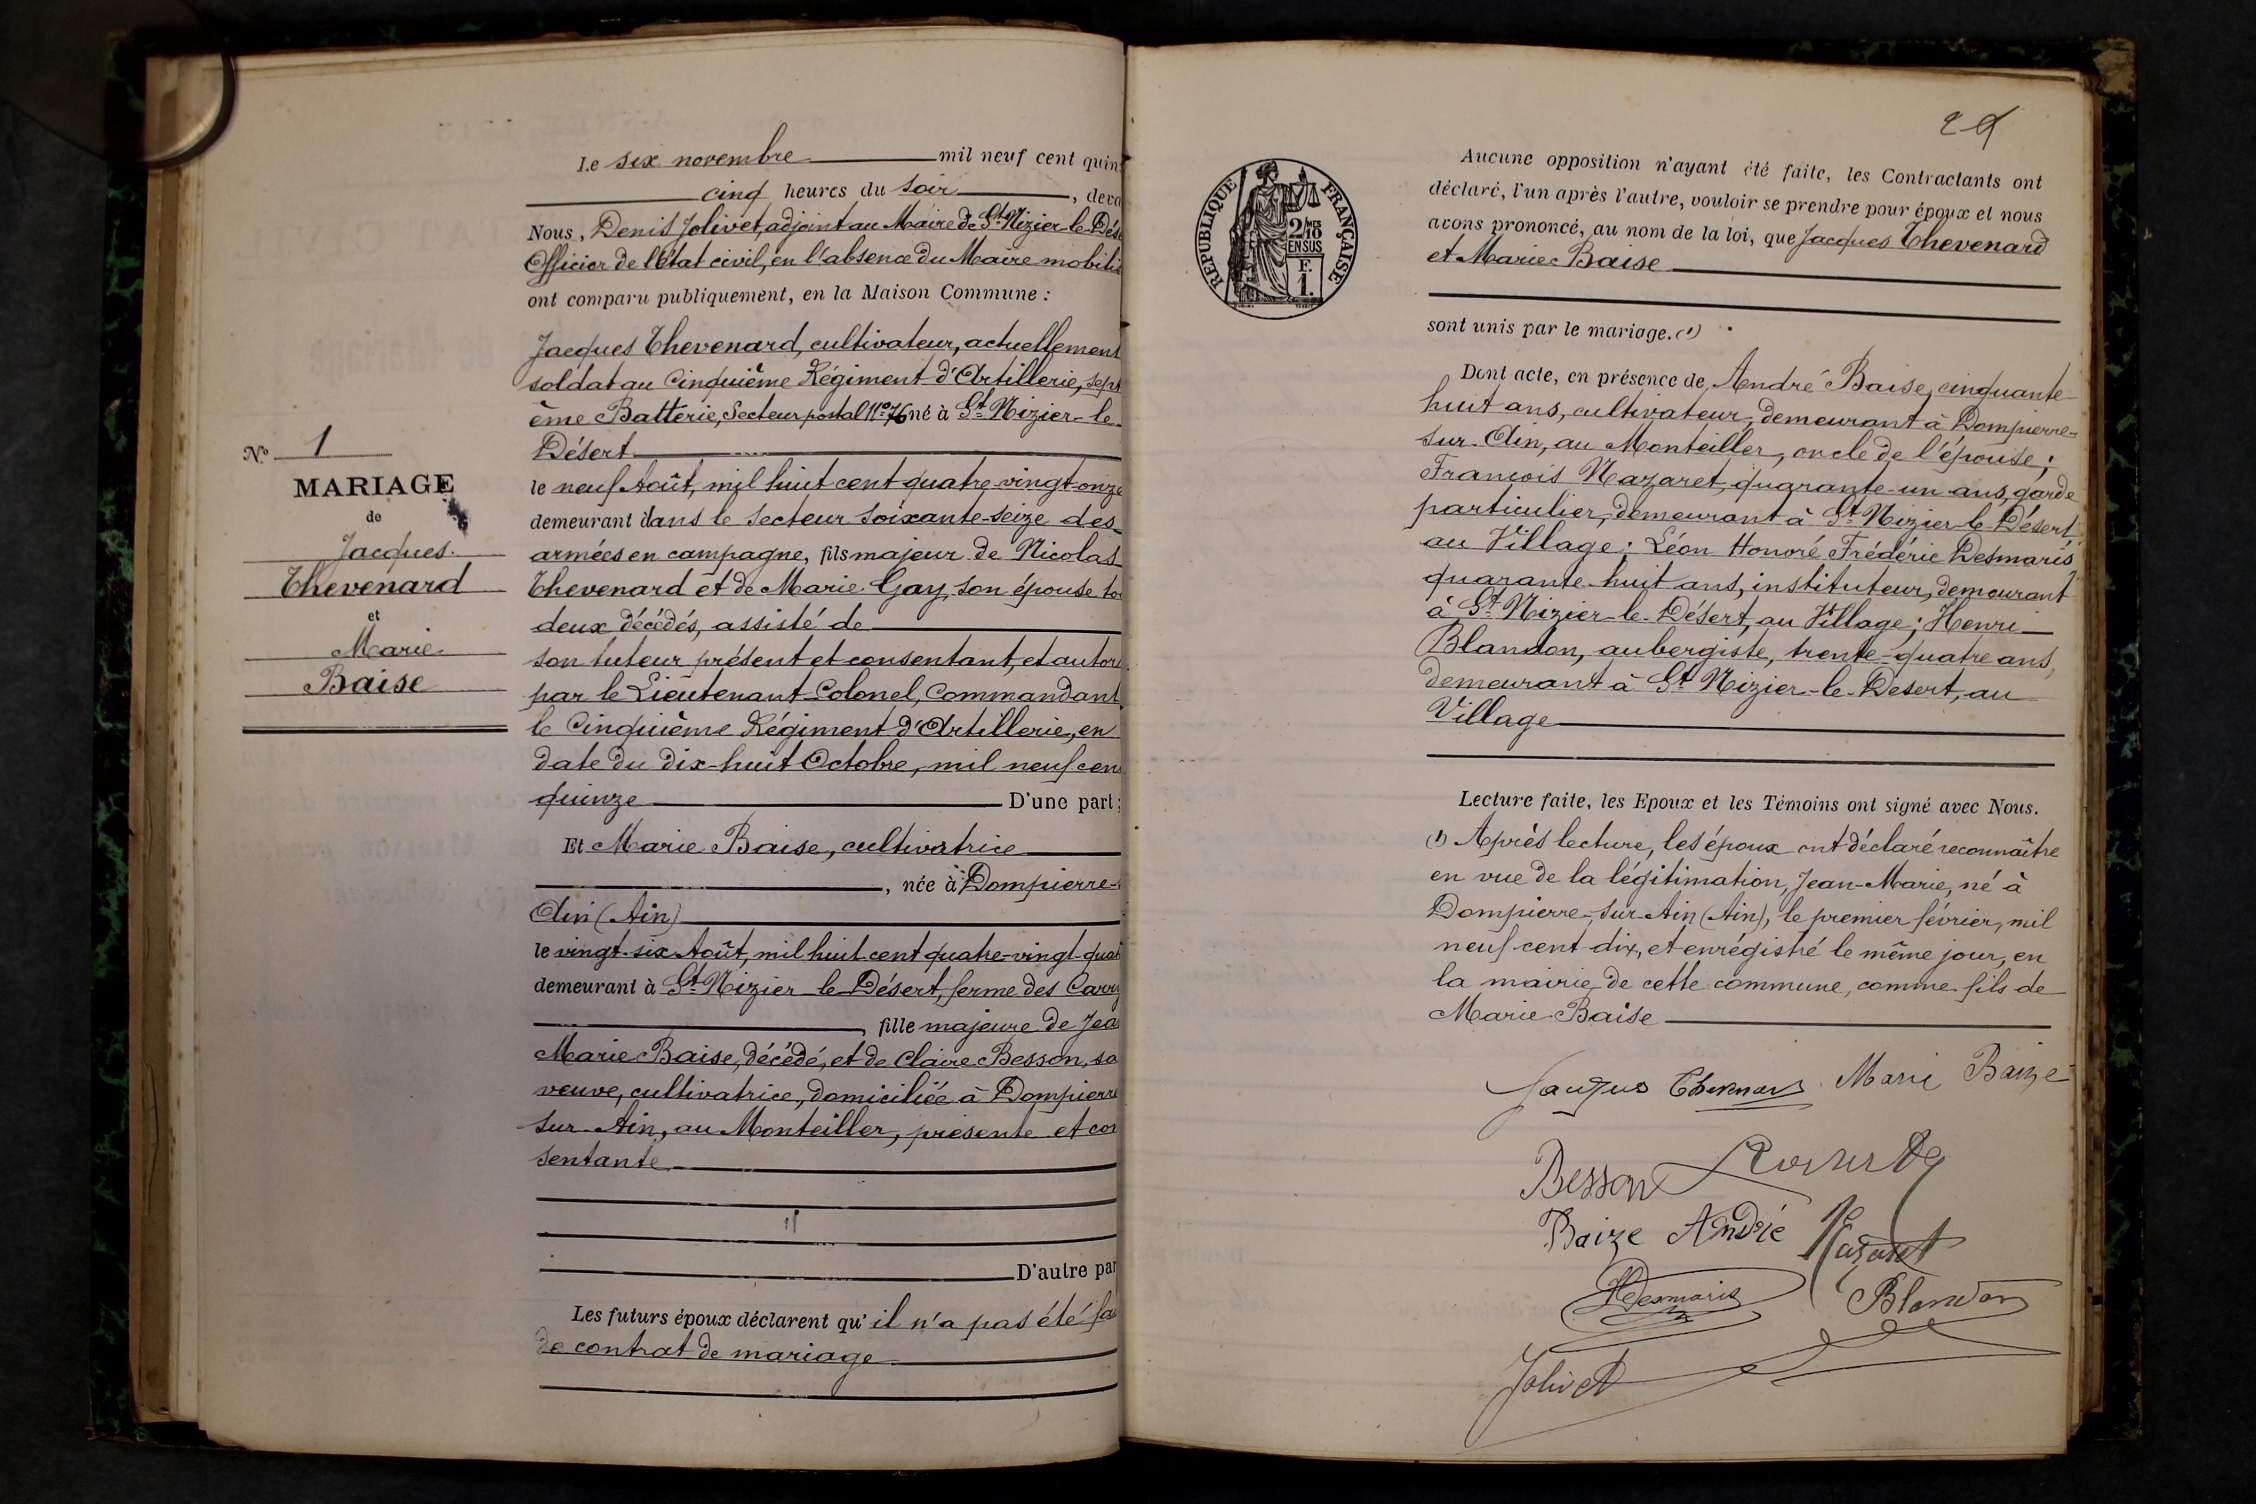 Le six novembre mil neuf cent quin
cinq heures du soir, deva
Nous, Denis Jolivet, adjoint au Maire de St Nizier-le-Dés
Officier de l'état civil, en l'absence du Maire mobilis
ont comparu publiquement, en la Maison Commune :
Jacques Thevenard, cultivateur, actuellement
soldat au Cinquième Régiment d'Artillerie, sept
ème Batterie, Secteur postal No 76 né à St Nizier-le-
Désert
le neuf Août, mil huit cent quatre-vingt-onze
demeurant dans le Secteur soixante-seize des
armées en campagne, fils majeur de Nicolas
Thevenard et de Marie Gay, son épouse to
deux décédés, assisté de
son tuteur présent et consentant, et autori
par le Lieutenant-Colonel, Commandant
le Cinquième Régiment d'Artillerie, en
date du dix-huit Octobre, mil neuf cen
quinze D'une part ;
No 1
MARIAGE
de
Jacques
Thevenard
et
Marie
Baise
Et Marie Baise, cultivatrice
, née à Dompierre-s
Ain (Ain)
le vingt-six Août, mil huit cent quatre-vingt-quat
demeurant à St Nizier-le-Désert, ferme des Carry
, fille majeure de Jea
Marie Baise, décédé, et de Claire Besson, sa
veuve, cultivatrice, domiciliée à Dompierre
sur-Ain, au Monteiller, présente et con
sentante
D'autre par
Les futurs époux déclarent qu'il n'a pas été fa
de contrat de mariage
RÉPUBLIQUE FRANÇAISE
2/10
EN SUS
F.
1.
Aucune opposition n'ayant été faite, les Contractants ont
déclaré, l'un après l'autre, vouloir se prendre pour époux et nous
avons prononcé, au nom de la loi, que Jacques Thevenard
et Marie Baise
sont unis par le mariage. (1)
Dont acte, en présence de André Baise, cinquante-
huit ans, cultivateur, demeurant à Dompierre-
sur-Ain, au Monteiller, oncle de l'épouse ;
François Nazaret, quarante-un ans, garde
particulier, demeurant à St Nizier-le-Désert
au Village ; Léon Honoré Frédéric Desmaris
quarante-huit ans, instituteur, demeurant
à St Nizier-le-Désert, au Village ; Henri
Blandon, aubergiste, trente-quatre ans,
demeurant à St Nizier-le-Désert, au
Village
Lecture faite, les Epoux et les Témoins ont signé avec Nous.
(1) Après lecture, les époux ont déclaré reconnaître
en vue de la légitimation, Jean-Marie, né à
Dompierre-sur-Ain (Ain), le premier février, mil
neuf cent dix, et enrégistré le même jour, en
la mairie de cette commune, comme fils de
Marie Baise
Jacques Thevenard Marie Baize
Besson
Baize André Nazaret
Desmaris Blandon
Jolivet